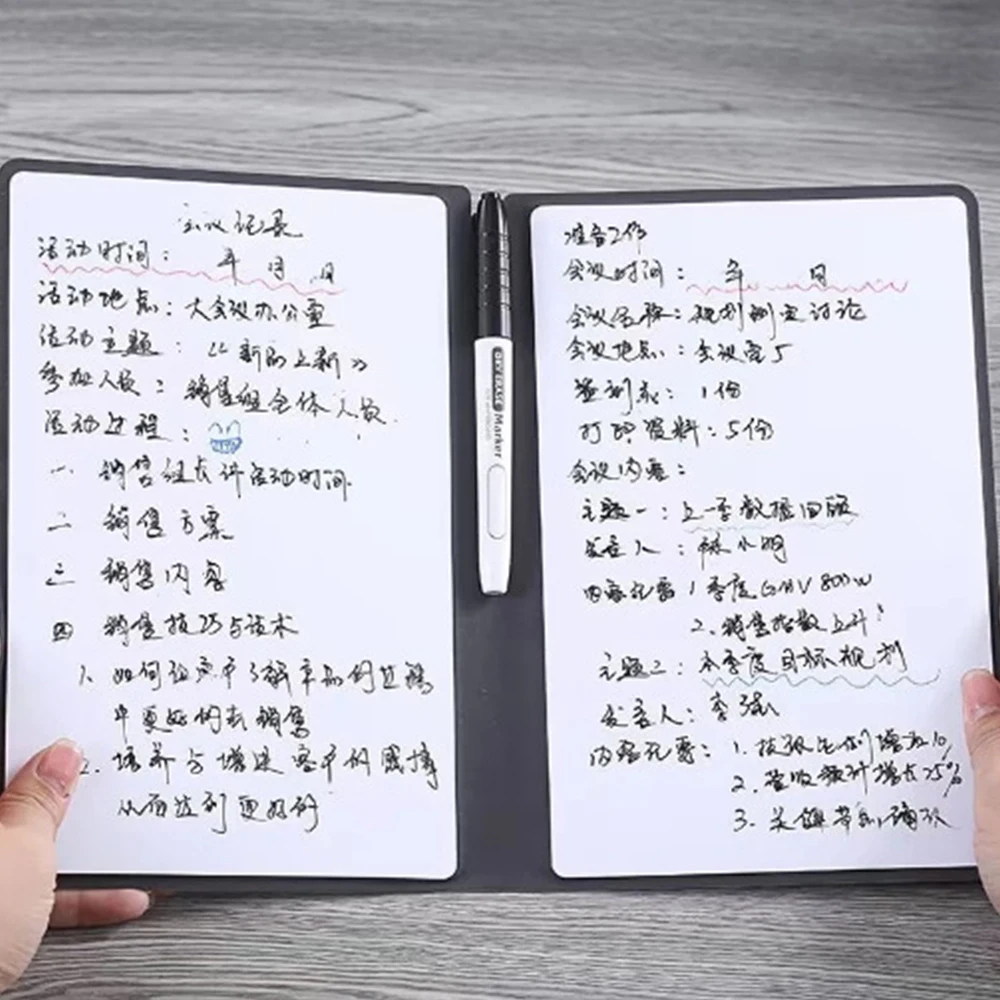 会议记录
活动时间： 年 月 日
活动地点：大会议办公室
活动主题：《新品上新》
参加人员：销售组全体人员
活动过程：
一 销售组长讲活动时间
二 销售方案
三 销售内容
四 销售技巧与话术
1、如何让客户了解产品的过程
中更好的去销售
2、培养与增进客户的感情
从而达到更好的
DRY ERASE Marker
准备工作
会议时间： 年 月
会议名称：规划制定讨论
会议地点：会议室5
签到表：1份
打印资料：5份
会议内容：
主题一：上一季数据回顾
发言人：林小明
内容纪要 1 季度GMV 800w
2. 销售指数上升
主题二：本季度目标规划
发言人：李强
内容纪要：1. 比例增加10%
2. 营收预计增长25%
3. 关键节点